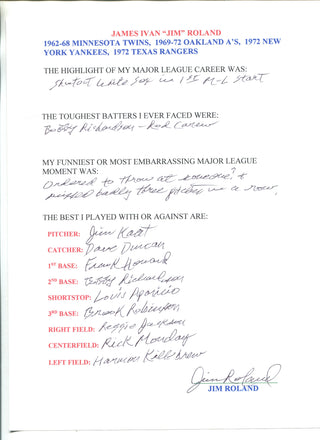 JAMES IVAN "JIM" ROLAND
1962-68 MINNESOTA TWINS, 1969-72 OAKLAND A'S, 1972 NEW
YORK YANKEES, 1972 TEXAS RANGERS
THE HIGHLIGHT OF MY MAJOR LEAGUE CAREER WAS:
Shutout White Sox in 1st M-L Start
THE TOUGHEST BATTERS I EVER FACED WERE:
Bobby Richardson - Rod Carew
MY FUNNIEST OR MOST EMBARRASSING MAJOR LEAGUE
MOMENT WAS:
Ordered to throw at someone? &
missed badly three pitches in a row.
THE BEST I PLAYED WITH OR AGAINST ARE:
PITCHER: Jim Kaat
CATCHER: Dave Duncan
1ST BASE: Frank Howard
2ND BASE: Bobby Richardson
SHORTSTOP: Louis Aparicio
3RD BASE: Brook Robinson
RIGHT FIELD: Reggie Jackson
CENTERFIELD: Rick Monday
LEFT FIELD: Harmon Killebrew
Jim Roland
JIM ROLAND